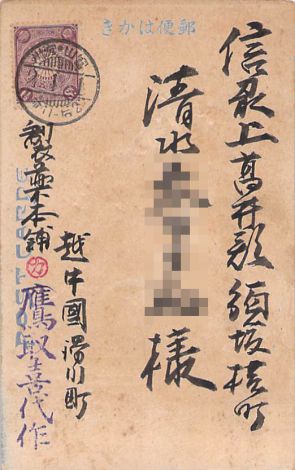 郵便はかき
信刕上高井郡須坂町
清水
様
越中國滑川町
製薬本舗
カ
鷹取喜代作